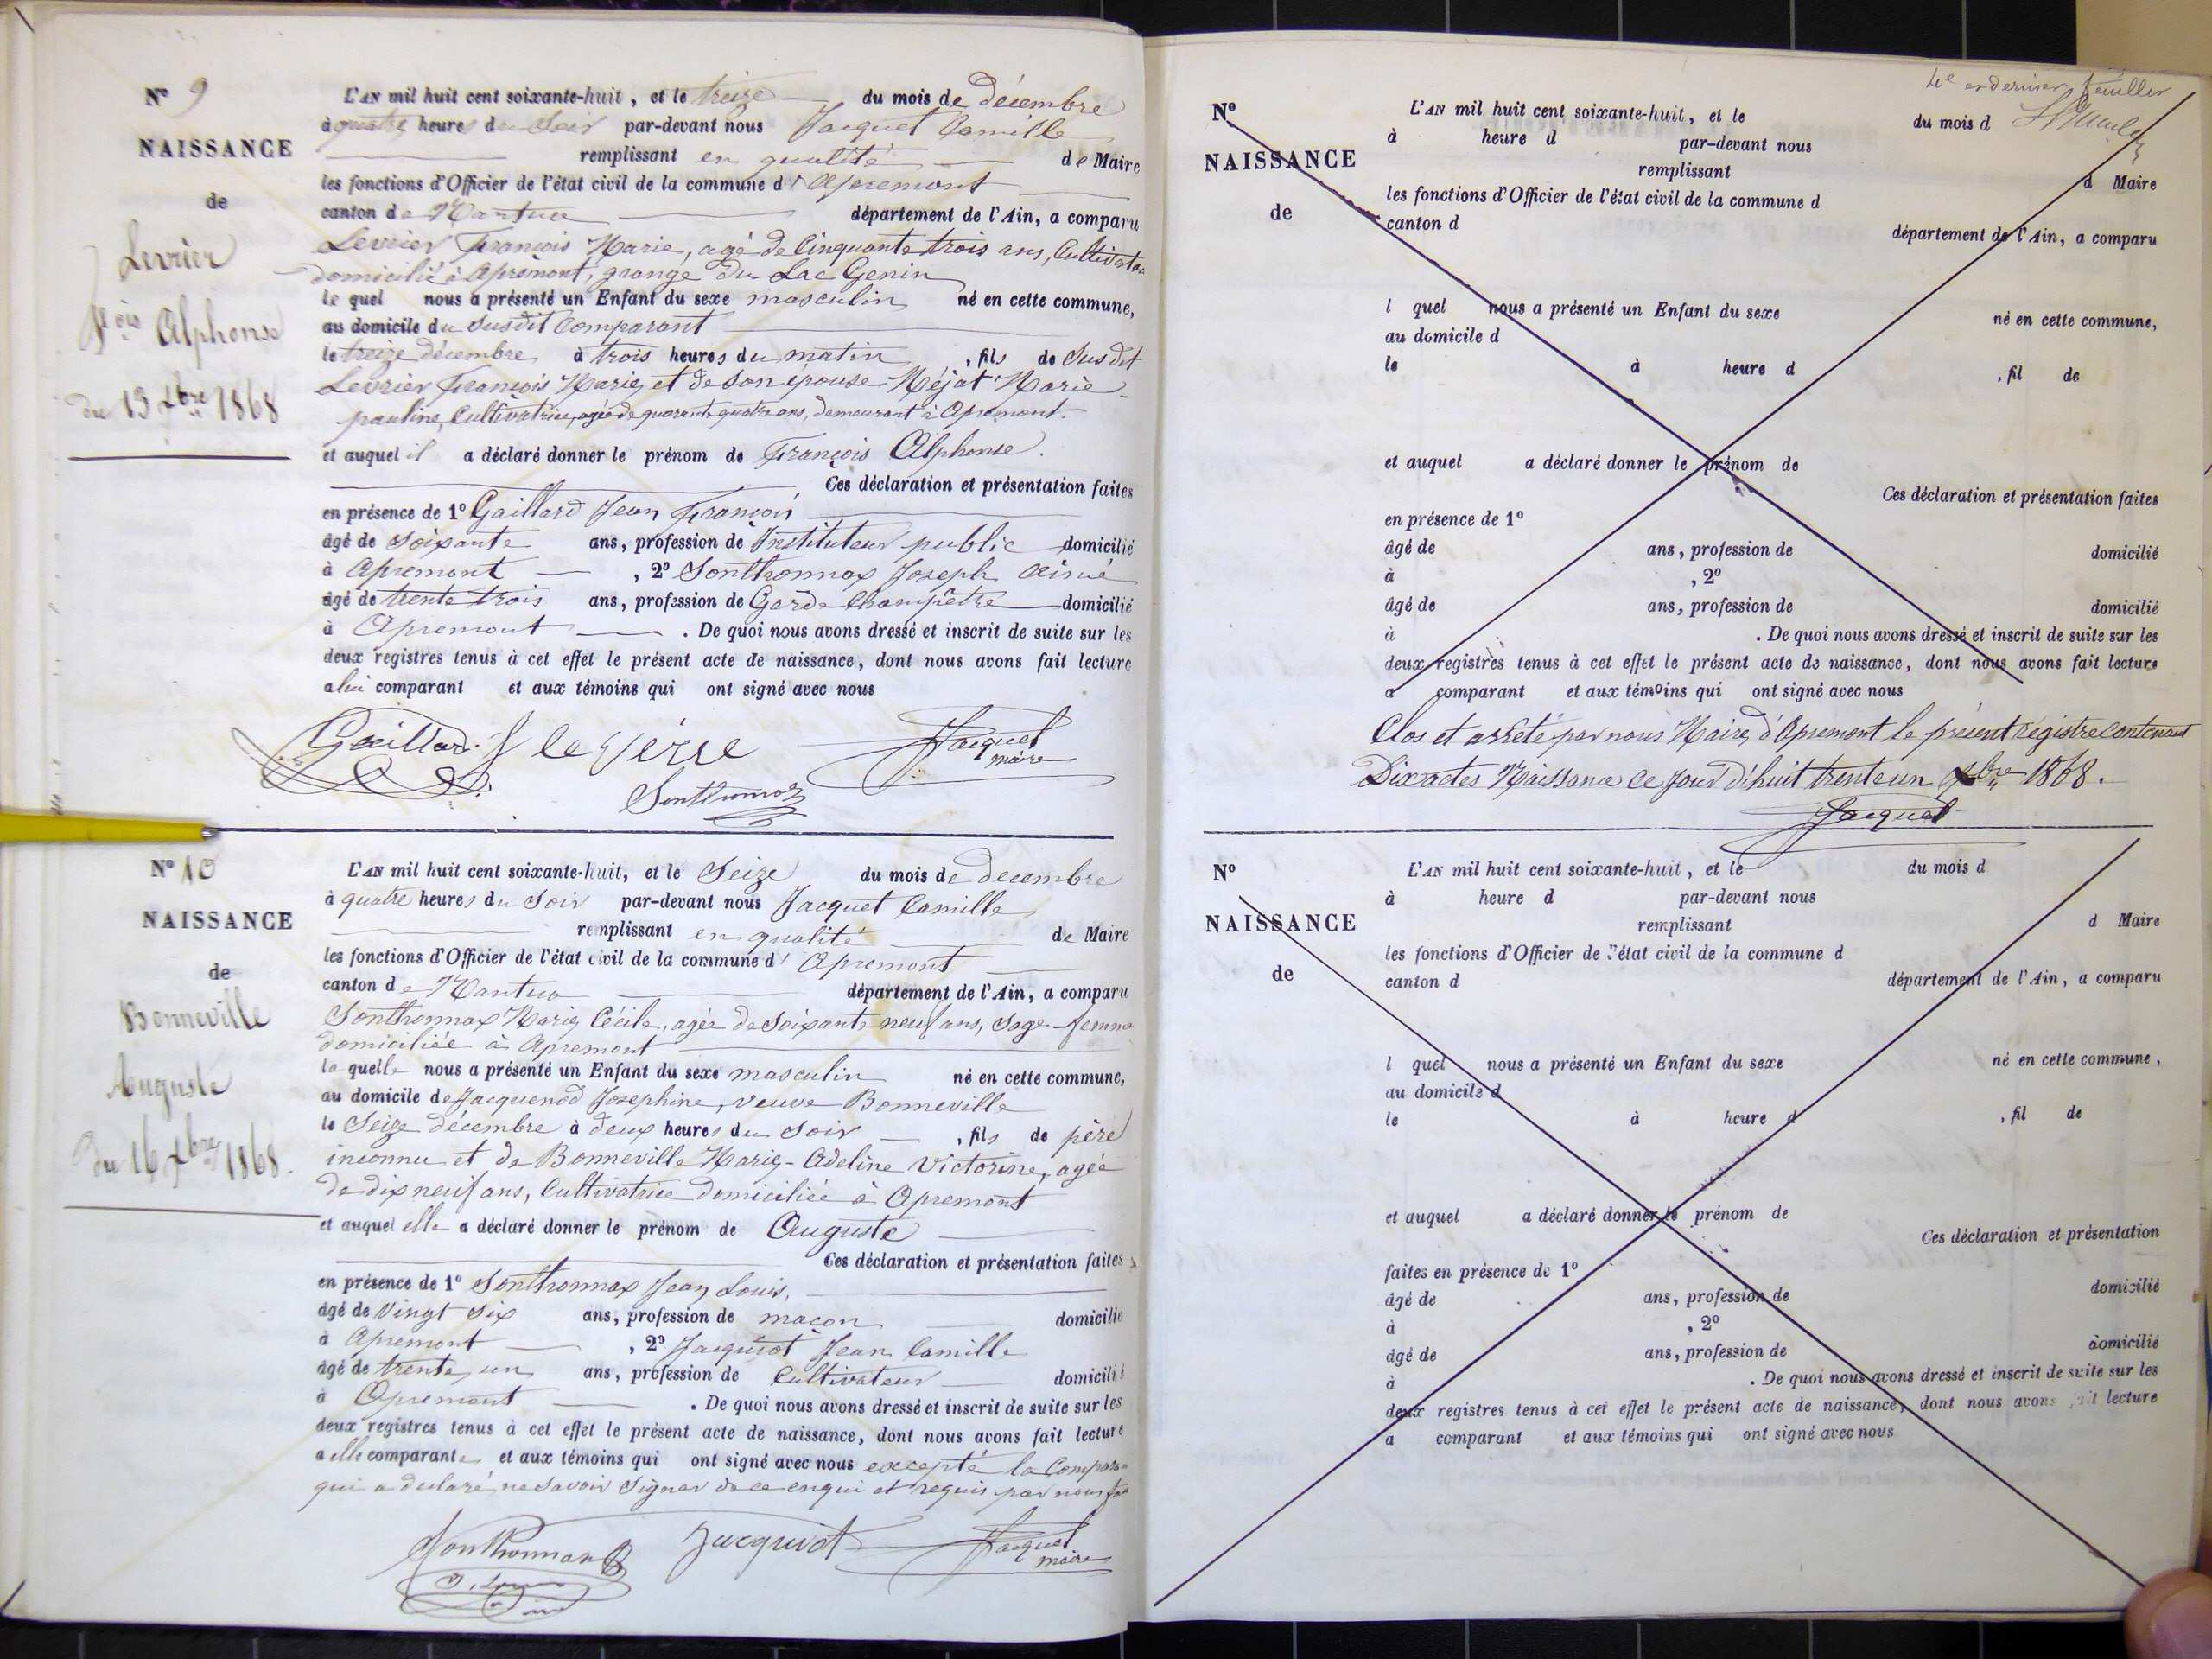 Nº 9
NAISSANCE
de
Levrier
fçois Alphonse
du 13 Xbre 1868
L'AN mil huit cent soixante-huit, et le treize du mois de décembre
à quatre heures du Soir par-devant nous Jacquet Camille
remplissant en qualité de Maire
les fonctions d'Officier de l'état civil de la commune d'Apremont
canton de Nantua département de l'Ain, a comparu
Levrier François Marie, agé de Cinquante trois ans, Cultivateur
domicilié à Apremont, grange du Lac Genin
le quel nous a présenté un Enfant du sexe masculin né en cette commune,
au domicile du susdit Comparant
le treize décembre à trois heures du matin, fils de Susdit
Levrier François Marie, et de son épouse Méjat Marie
pauline, Cultivatrice, agée de quarante quatre ans, demeurant à Apremont.
et auquel il a déclaré donner le prénom de François Alphonse.
Ces déclaration et présentation faites
en présence de 1º Gaillard Jean François
âgé de soixante ans, profession de Instituteur public domicilié
à Apremont, 2º Sonthonnax Joseph Aimé
âgé de trente trois ans, profession de Garde Champêtre domicilié
à Apremont. De quoi nous avons dressé et inscrit de suite sur les
deux registres tenus à cet effet le présent acte de naissance, dont nous avons fait lecture
a lui comparant et aux témoins qui ont signé avec nous
Gaillard. f le verie Jacquet
maire
Sonthonnax
Nº 10
NAISSANCE
de
Bonneville
Auguste
du 16 Xbre 1868.
L'AN mil huit cent soixante-huit, et le Seize du mois de decembre
à quatre heures du Soir par-devant nous Jacquet Camille
remplissant en qualité de Maire
les fonctions d'Officier de l'état civil de la commune d'Apremont
canton de Nantua département de l'Ain, a comparu
Sonthonnax Marie, Cécile, agée de soixante neuf ans, Sage-femme
domiciliée à Apremont
la quelle nous a présenté un Enfant du sexe masculin né en cette commune,
au domicile de Jacquenod Josephine, veuve Bonneville
le Seize décembre à deux heures du Soir, fils de père
inconnu et de Bonneville Marie-Adeline Victorine, agée
de dix neuf ans, Cultivatrice domiciliée à Apremont
et auquel elle a déclaré donner le prénom de Auguste
Ces déclaration et présentation faites
en présence de 1º Sonthonnax Jean Louis,
âgé de Vingt Six ans, profession de maçon domicilié
à Apremont, 2º Jacquiot Jean Camille
âgé de trente un ans, profession de Cultivateur domicilié
à Apremont. De quoi nous avons dressé et inscrit de suite sur les
deux registres tenus à cet effet le présent acte de naissance, dont nous avons fait lecture
a elle comparante et aux témoins qui ont signé avec nous excepté la Compara
qui a declaré ne savoir signer de ce enqui et requis par nous
Sonthonnax Jacquiot Jacquet
maire
4e et dernier feuillet
Nº
NAISSANCE
de
L'AN mil huit cent soixante-huit, et le du mois d
à heure d par-devant nous
remplissant d Maire
les fonctions d'Officier de l'état civil de la commune d
canton d département de l'Ain, a comparu
l quel nous a présenté un Enfant du sexe né en cette commune,
au domicile d
le à heure d, fil de
et auquel a déclaré donner le prénom de
Ces déclaration et présentation faites
en présence de 1º
âgé de ans, profession de domicilié
à, 2º
âgé de ans, profession de domicilié
à. De quoi nous avons dressé et inscrit de suite sur les
deux registres tenus à cet effet le présent acte de naissance, dont nous avons fait lecture
a comparant et aux témoins qui ont signé avec nous
Clos et arrêté par nous Maire, d'Apremont le présent registre contenant
Dix actes Naissance ce jourd'huit trente un Xbre 1868.
Jacquet
Nº
NAISSANCE
de
L'AN mil huit cent soixante-huit, et le du mois d
à heure d par-devant nous
remplissant d Maire
les fonctions d'Officier de l'état civil de la commune d
canton d département de l'Ain, a comparu
l quel nous a présenté un Enfant du sexe né en cette commune,
au domicile d
le à heure d, fil de
et auquel a déclaré donner le prénom de
Ces déclaration et présentation
faites en présence de 1º
âgé de ans, profession de domicilié
à, 2º
âgé de ans, profession de domicilié
à. De quoi nous avons dressé et inscrit de suite sur les
deux registres tenus à cet effet le présent acte de naissance, dont nous avons fait lecture
a comparant et aux témoins qui ont signé avec nous